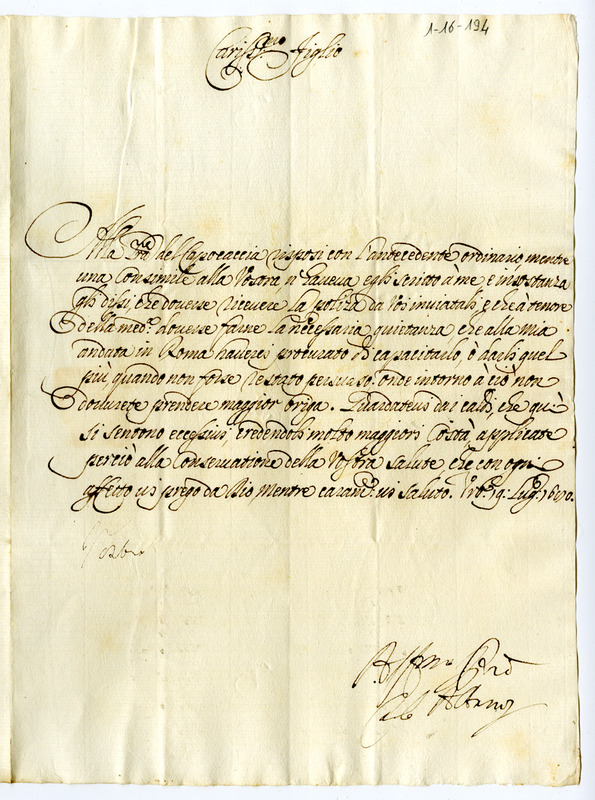 1-16-194
Cariss.mo Figlio
Alla V.ra del Capocaccia risposi con l'antecedente ordinario, mentre
una consimile alla Vostra n'haveva egli scritto à me, e in sostanza
gli dissi, che dovesse ricevere la poliza da Voi inviatali, e che à tenore
della med.a dovesse farne la necessaria quietanza, che alla mia
andata in Roma haverei procurato di capacitarlo, ò darli quel
più, quando non fosse restato persuaso: onde intorno à ciò non
dovrete prendere maggior briga. Guardatevi dai caldi, che quì
si sentono eccessivi, credendoli molto maggiori costà, applicate
perciò alla conservatione della Vostra salute, che con ogni
affetto vi prego da Dio mentre caram.te vi saluto. Urb.o 19. Lug.o